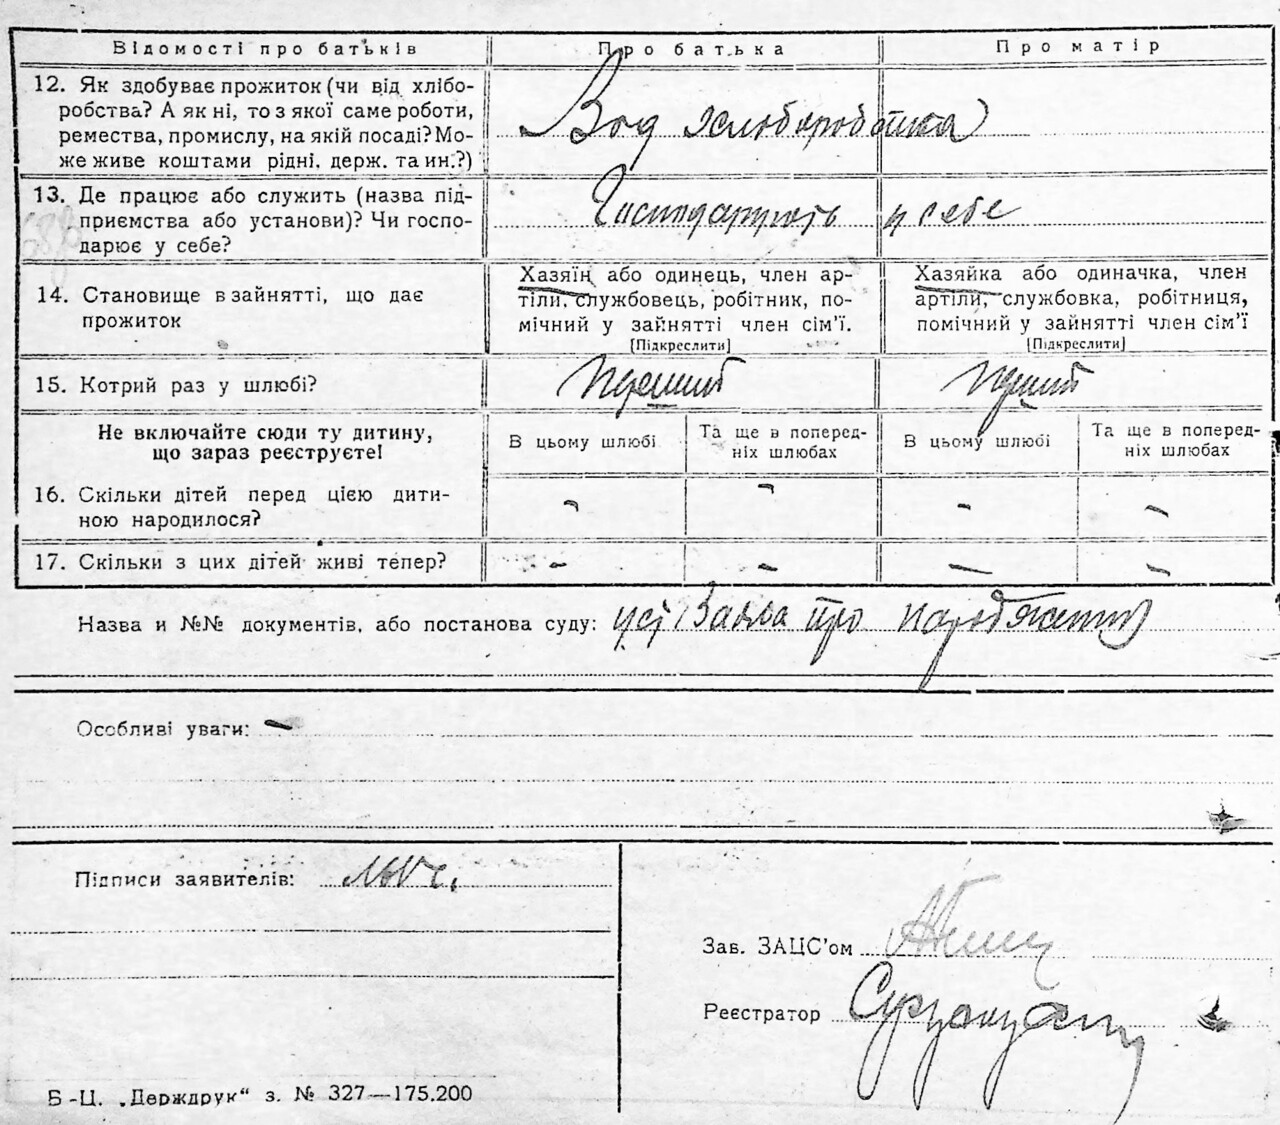 Відомості про батьків Про батька Про матір
12. Як здобуває прожиток (чи від хлібо-
робства? А як ні, то з якої саме роботи,
ремества, промислу, на якій посаді? Мо-
же живе коштами рідні. держ. та ин.?)
Вод хлоборобтива
13. Де працює або служить (назва під-
приємства або установи)? Чи госпо-
дарює у себе?
Господарюють у себе
14. Становище в зайнятті, що дає
прожиток
Хазяїн або одинець, член ар-
тіли, службовець, робітник, по-
мічний у зайнятті член сім’ї.
[Підкреслити]
Хазяйка або одиначка, член
артіли, службовка, робітниця,
помічний у зайнятті член сім’ї
[Підкреслити]
15. Котрий раз у шлюбі? Перший Перший
Не включайте сюди ту дитину,
що зараз реєструєте!
В цьому шлюбі
Та ще в поперед-
ніх шлюбах
В цьому шлюбі
Та ще в поперед-
ніх шлюбах
16. Скільки дітей перед цією дити-
ною народилося?
- - - -
17. Скільки з цих дітей живі тепер? - - - -
Назва и №№ документів, або постанова суду: усі Заява про народження
Особливі уваги: -
Підписи заявителів:
Зав. ЗАЦС’ом
Реєстратор
Б-Ц. „Держдрук“ з. № 327—175.200